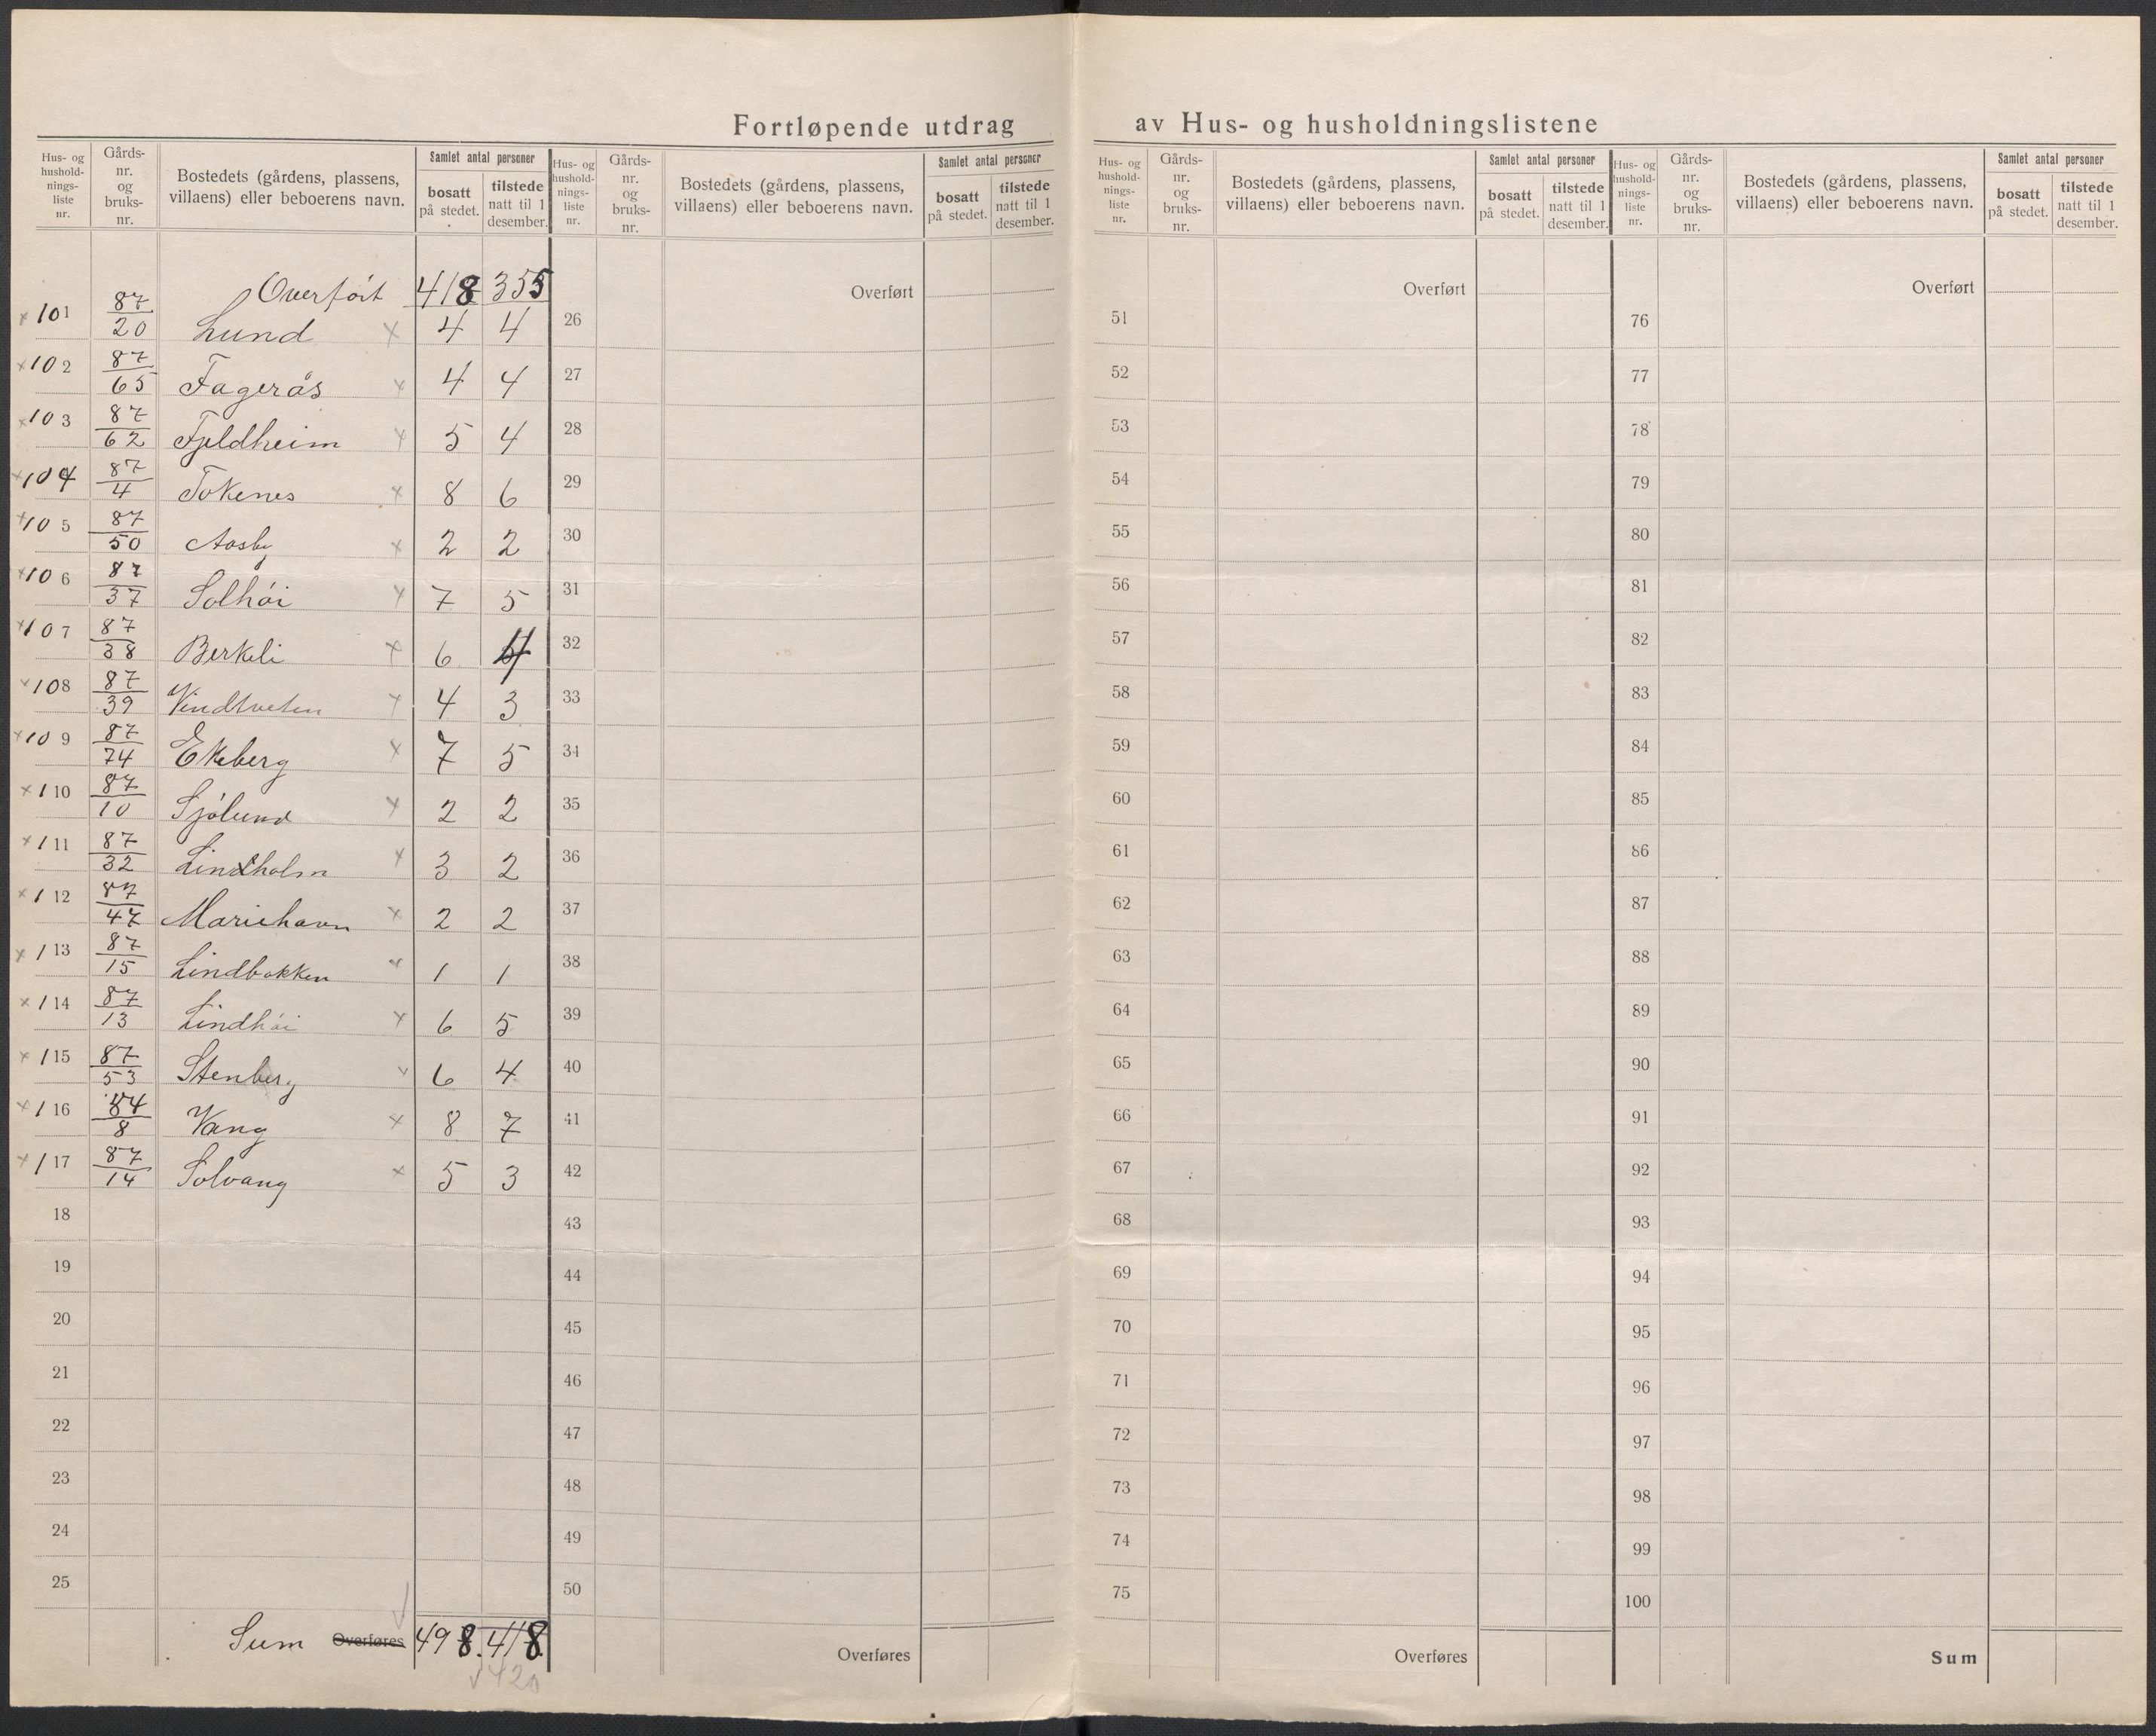 Fortløpende utdrag av Hus- og husholdningslistene
Hus- og hushold- nings- liste nr.
Gårds- nr. og bruks- nr.
Bostedets (gårdens, plassens, villaens) eller beboerens navn.
Samlet antal personer
bosatt på stedet.
tilstede natt til 1 desember.
Overført 418 355
101 87/20 Lund × 4 4
102 87/65 Fagerås × 4 4
103 87/62 Fjeldheim × 5 4
104 87/4 Tokenes × 8 6
105 87/50 Aasby × 2 2
106 87/37 Solhöi × 7 5
107 87/38 Berkeli × 6 4
108 87/39 Vindtveten × 4 3
109 87/74 Ekeberg × 7 5
110 87/10 Sjölund × 2 2
111 87/32 Lindholm × 3 2
112 87/47 Mariehavn × 2 2
113 87/15 Lindbakken × 1 1
114 87/13 Lindhöi × 6 5
115 87/53 Stenberg × 6 4
116 84/8 Vang × 8 7
117 87/14 Solvang × 5 3
18
19
20
21
22
23
24
25
Sum Overføres 498. 418
420
Hus- og hushold- nings- liste nr.
Gårds- nr. og bruks- nr.
Bostedets (gårdens, plassens, villaens) eller beboerens navn.
Samlet antal personer
bosatt på stedet.
tilstede natt til 1 desember.
Overført
26
27
28
29
30
31
32
33
34
35
36
37
38
39
40
41
42
43
44
45
46
47
48
49
50
Overføres
Hus- og hushold- nings- liste nr.
Gårds- nr. og bruks- nr.
Bostedets (gårdens, plassens, villaens) eller beboerens navn.
Samlet antal personer
bosatt på stedet.
tilstede natt til 1 desember.
Overført
51
52
53
54
55
56
57
58
59
60
61
62
63
64
65
66
67
68
69
70
71
72
73
74
75
Overføres
Hus- og hushold- nings- liste nr.
Gårds- nr. og bruks- nr.
Bostedets (gårdens, plassens, villaens) eller beboerens navn.
Samlet antal personer
bosatt på stedet.
tilstede natt til 1 desember.
Overført
76
77
78
79
80
81
82
83
84
85
86
87
88
89
90
91
92
93
94
95
96
97
98
99
100
Sum